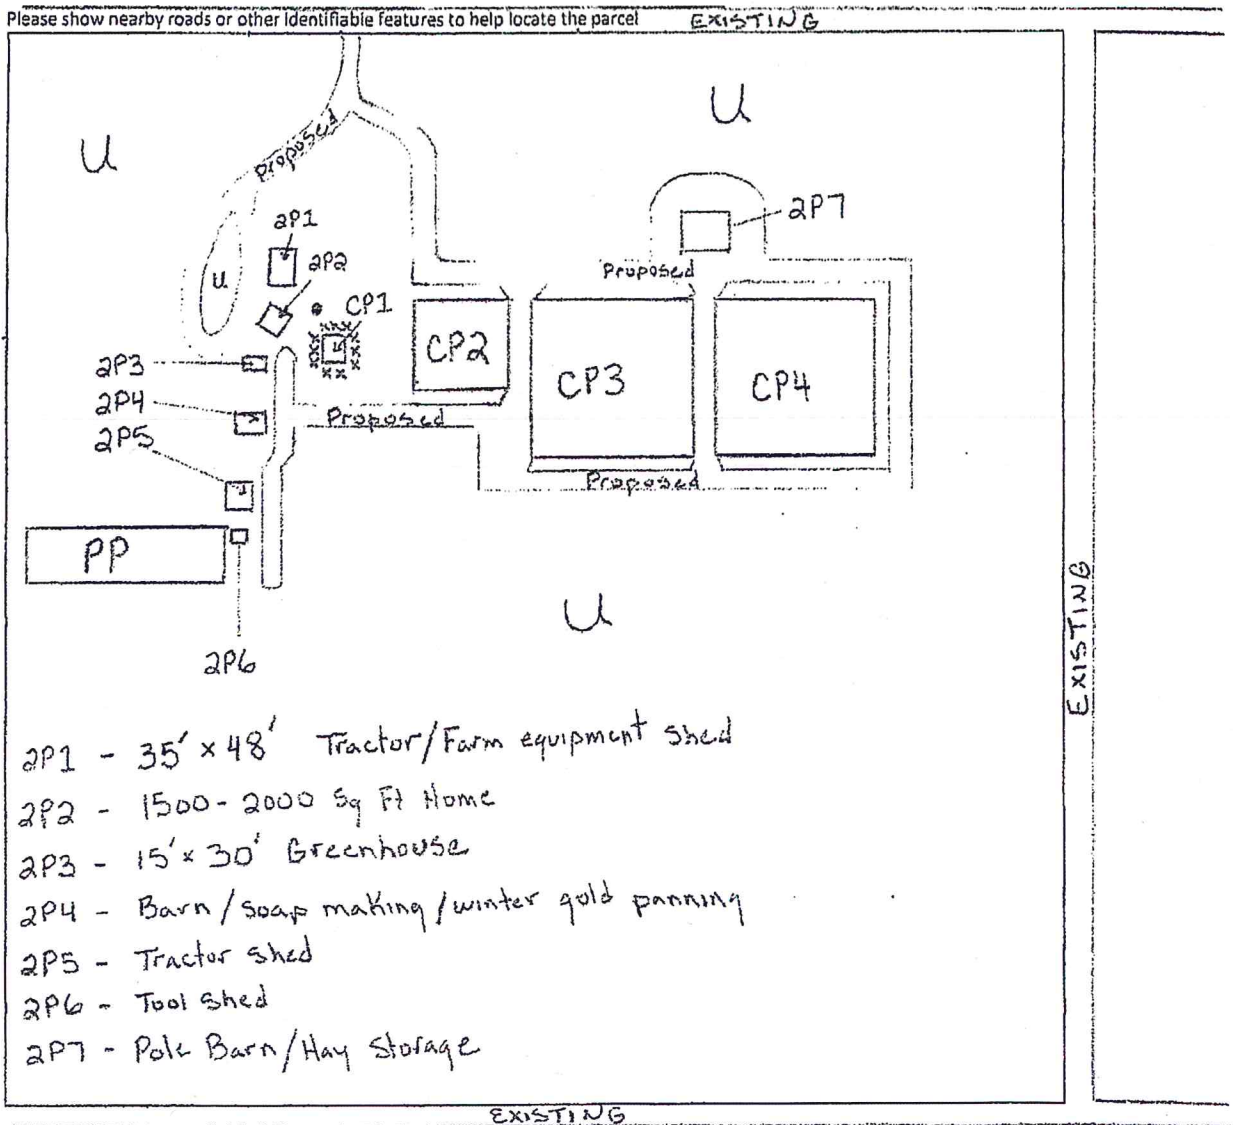 Please show nearby roads or other identifiable features to help locate the parcel EXISTING
U
U
Proposed
2P1
2P7
2P2
U
Proposed
CP1
CP2
2P3
CP3
CP4
2P4
Proposed
2P5
Proposed
PP
EXISTING
U
2P6
2P1 - 35' x 48' Tractor/Farm equipment shed
2P2 - 1500-2000 Sq Ft Home
2P3 - 15' x 30' Greenhouse
2P4 - Barn/soap making/winter gold panning
2P5 - Tractor shed
2P6 - Tool shed
2P7 - Pole Barn/Hay Storage
EXISTING